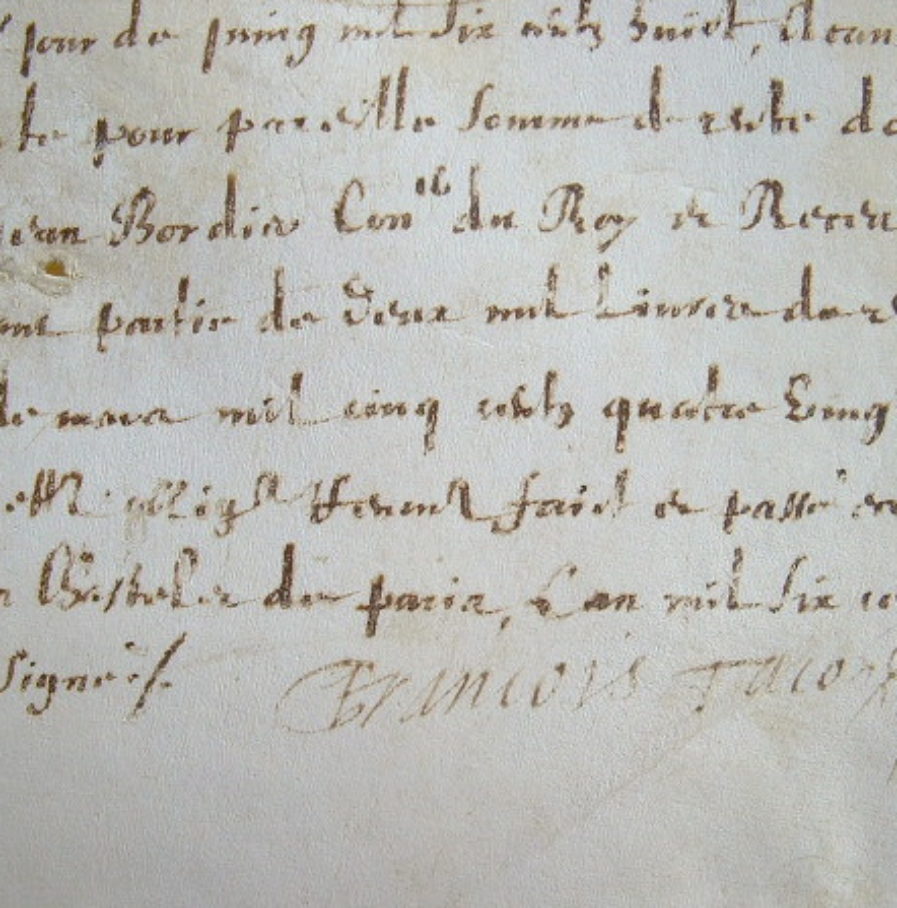 jour de juing mil six centz huict, A cau
pour pareille somme de rente de
Jean Bordier Con.er du Roy et Recev
partie de deux mil Livres de
de mars mil cinq centz quatre Ving
oblig faict et passé
Chastelet de paris, Lan mil six ce
Signé
Francois Jaco